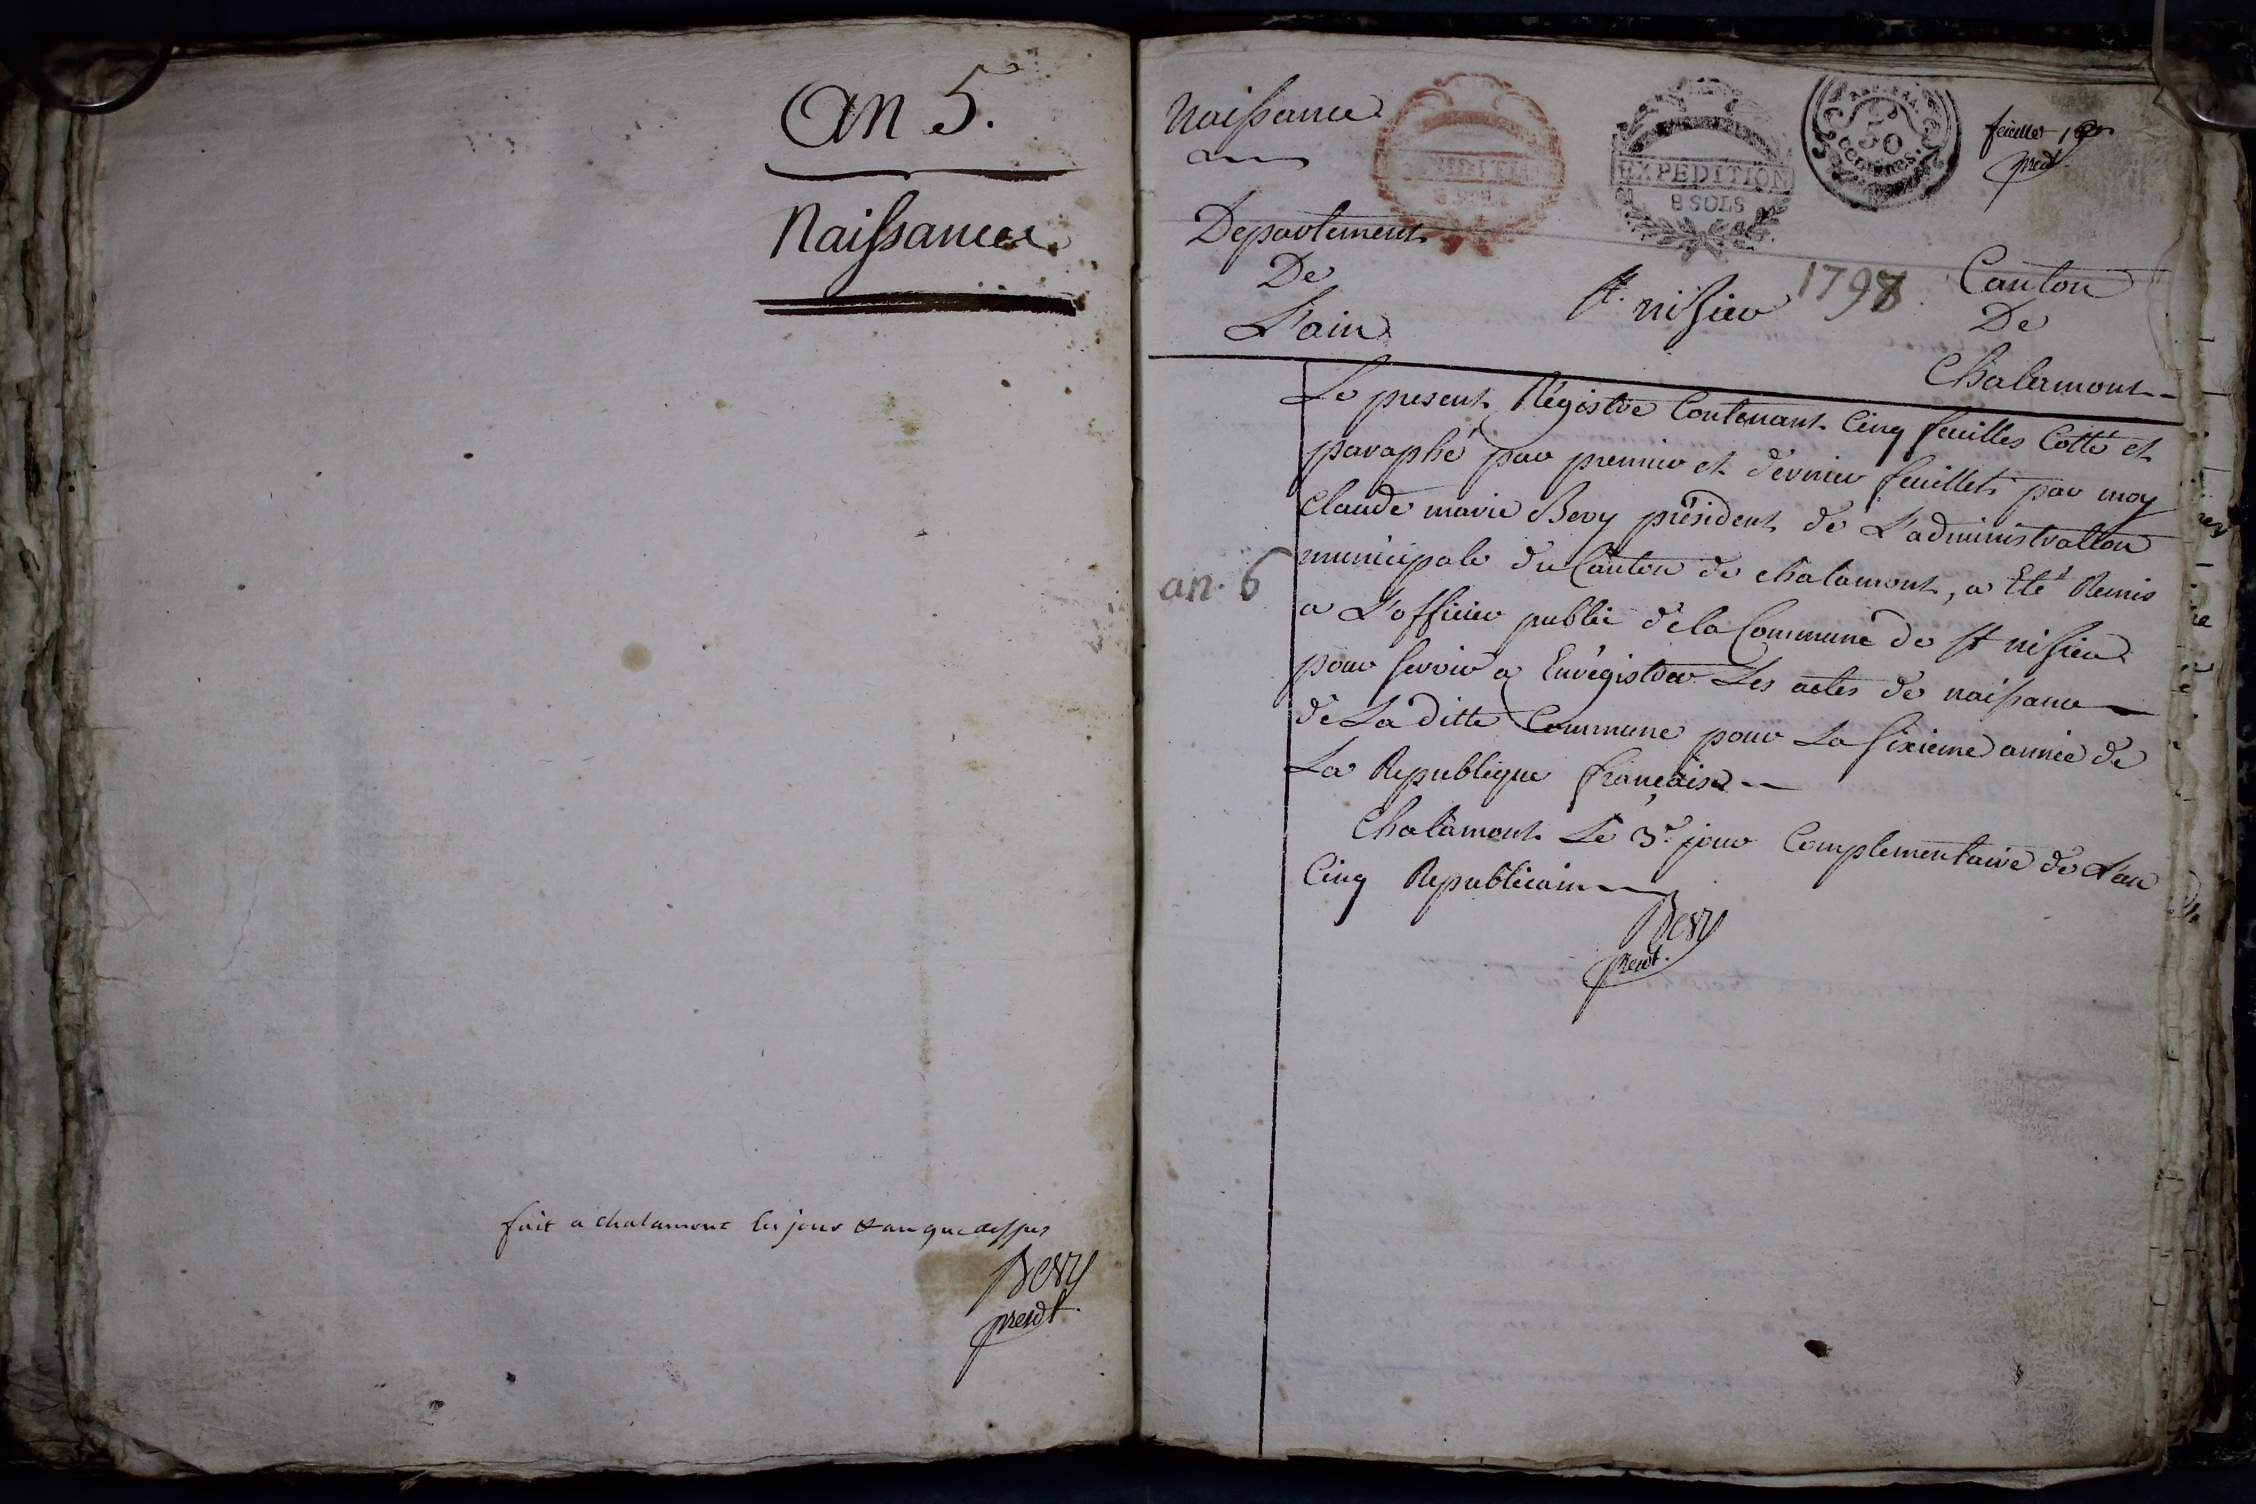 an 5.
Naissances
fait a chalamont les jour & an que dessus
Bery
presdt.
Naissance
EXPEDITION
8 SOLS
50
CENTIMES.
feuillet 1er
presdt
Departement
De
L'ain
st. nisier 1798
Canton
De
Chalamont
an. 6
Le present Régistre Contenant Cinq feuilles Cotté et
paraphé par premier et dernier feuillet par moy
Claude marie Bery président de L'administration
municipale du Canton de chalamont, a Eté Remis
a L'officier public de la Commune de st nisier
pour servir a Enrégistrer Les actes de naissance
de La ditte Commune pour La sixieme année de
La Republique française
Chalamont Le 3e. jour Complementaire de L'an
Cinq Republicain
Bery
presdt.